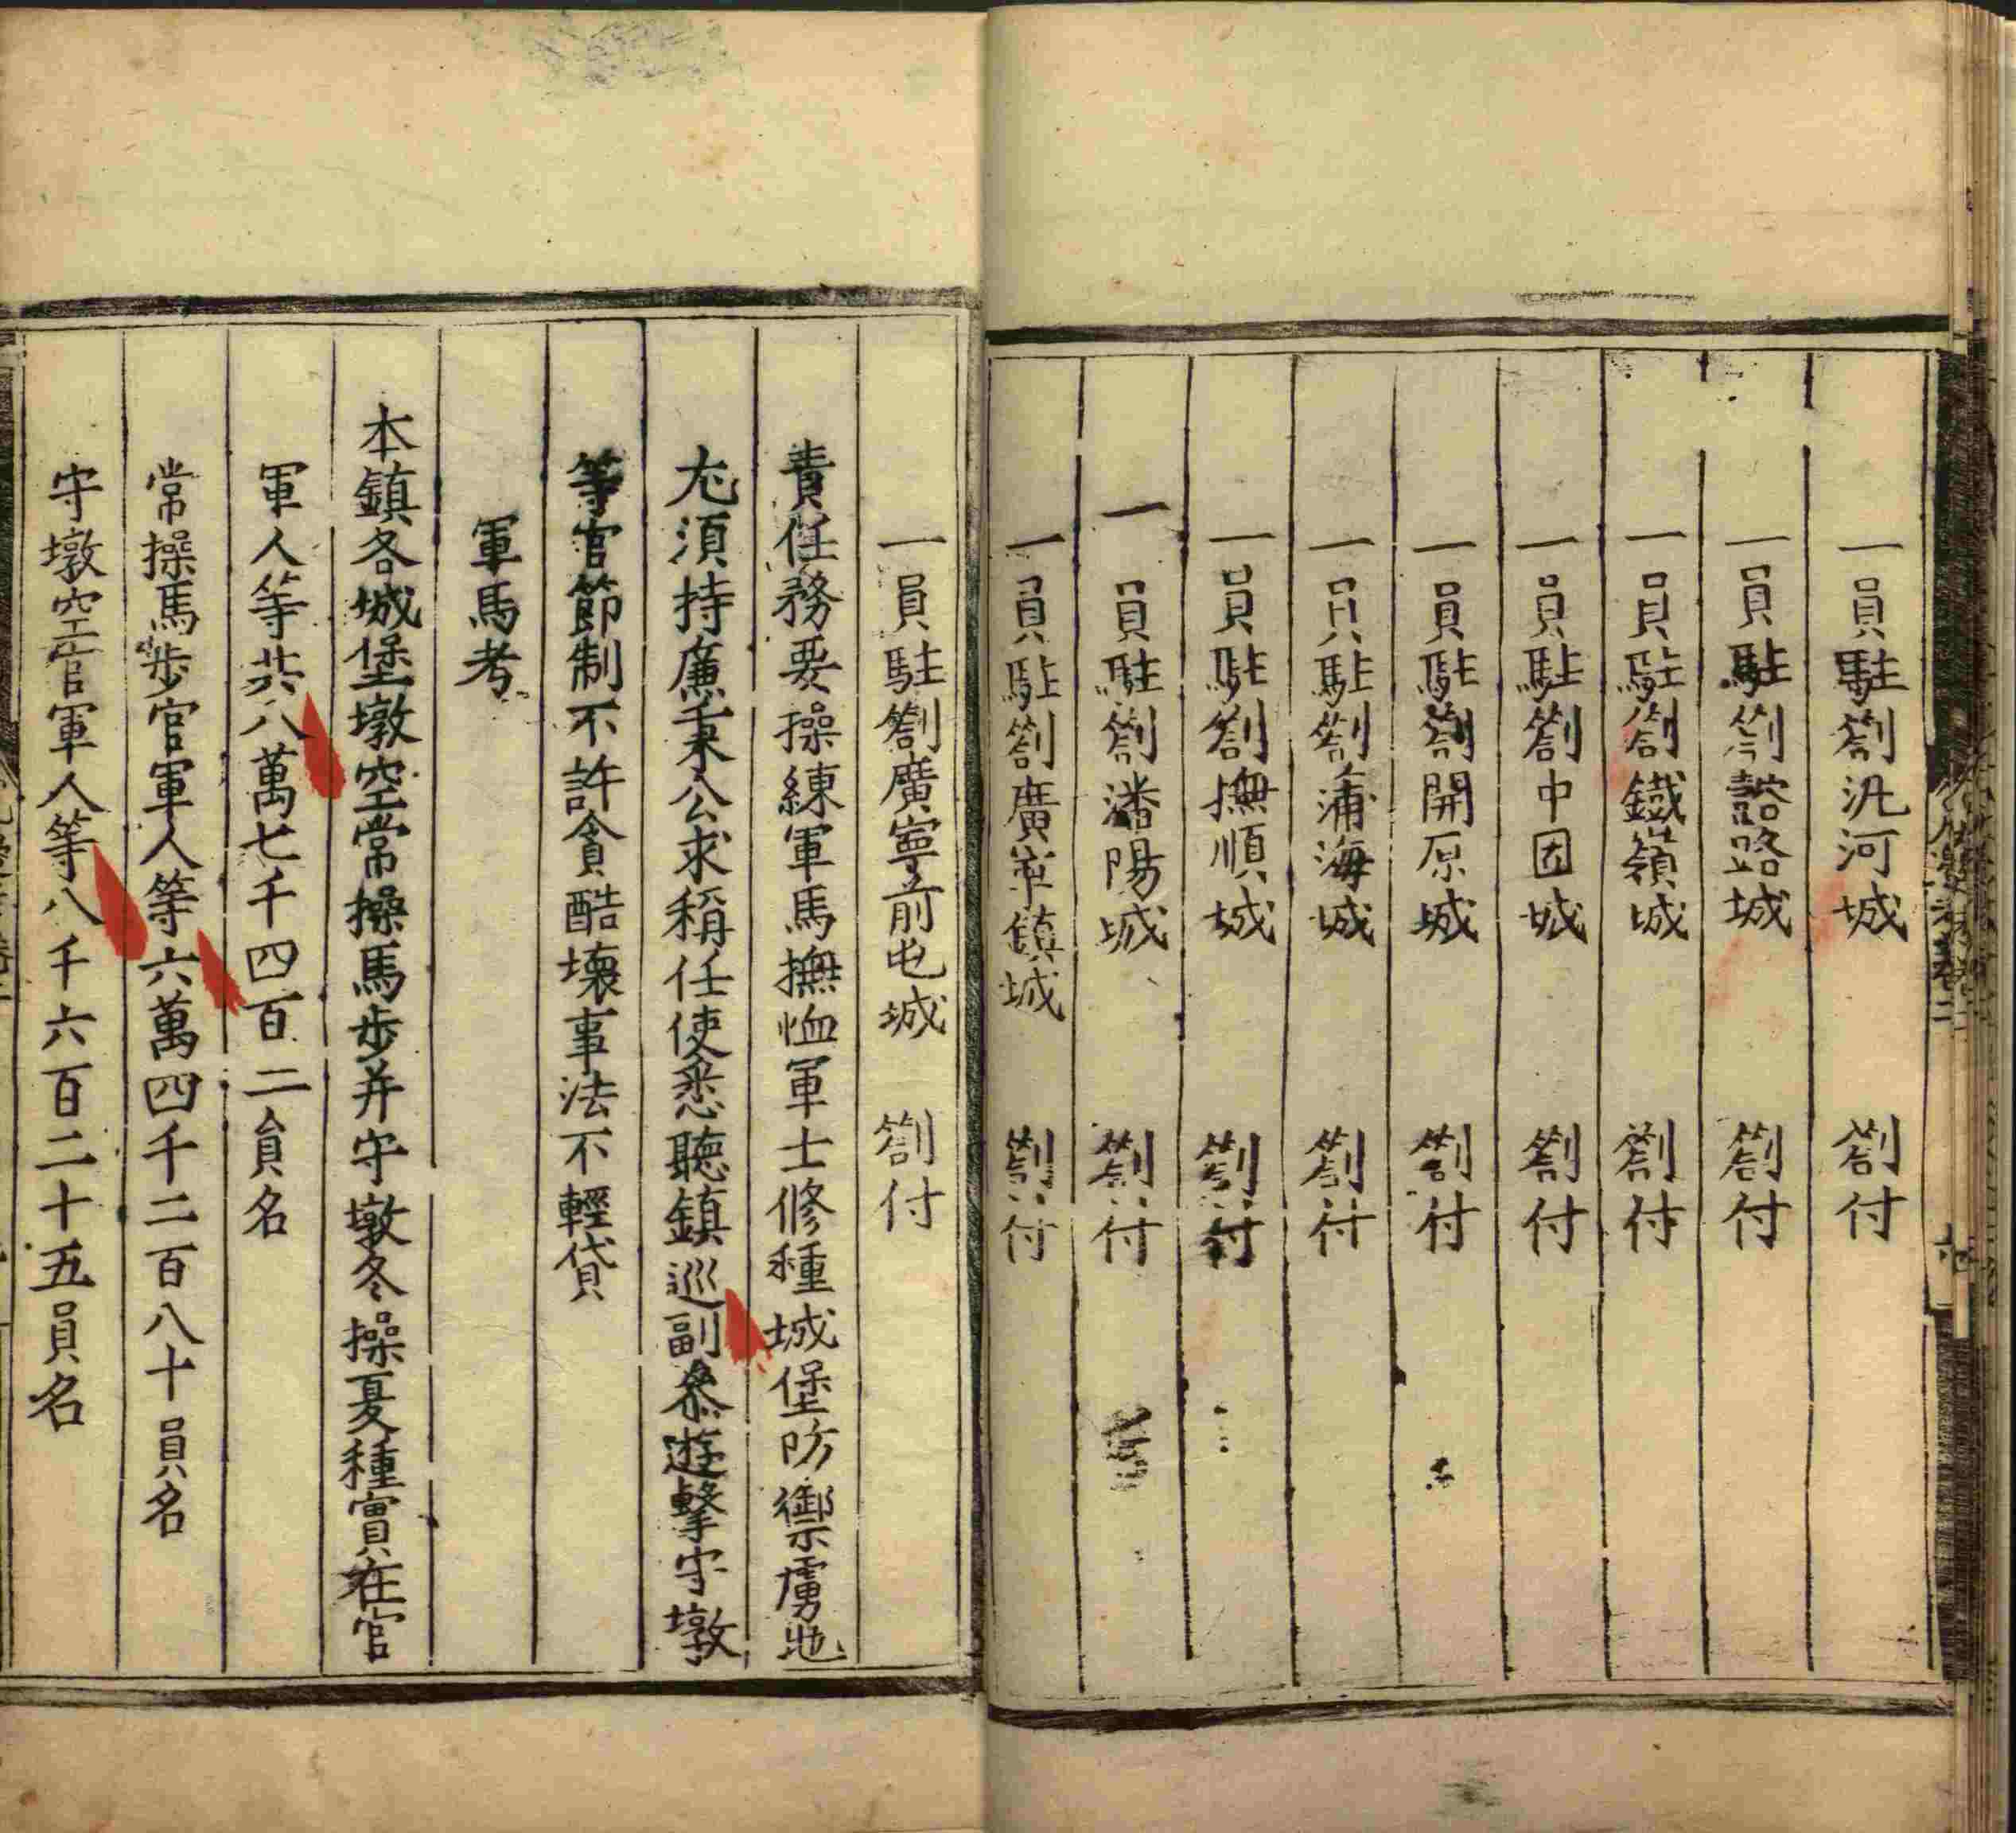 一員駐劄汎河城　劄付
一員駐劄懿路城　劄付
一員駐劄鐵嶺城　劄付
一員駐劄中固城　劄付
一員駐劄開原城　劄付
一員駐劄蒲海城　劄付
一員駐劄撫順城　劄付
一員駐劄瀋陽城　劄付
一員駐劄廣寧鎮城　劄付
一員駐劄廣寧前屯城　劄付
責任務要操練軍馬撫恤軍士修種城堡防禦虜地
尤須持廉秉公求稱任使悉聽鎮巡副叅遊擊守墩
等官節制不許貪酷壞事法不輕貸
軍馬考
本鎮各城堡墩空常操馬步并守墩冬操夏種實在官
軍人等共八萬七千四百二員名
常操馬步官軍人等六萬四千二百八十員名
守墩空官軍人等八千六百二十五員名